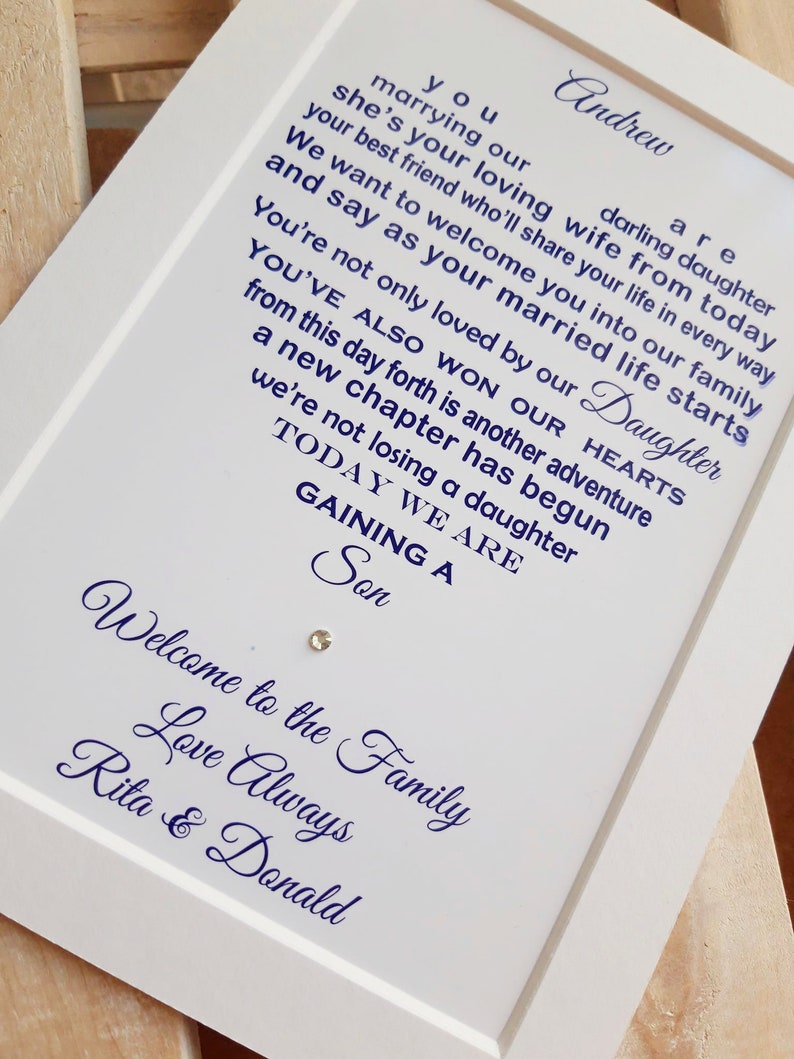 Andrew
you are
marrying our darling daughter
she's your loving wife from today
your best friend who'll share your life in every way
We want to welcome you into our family
and say as your married life starts
You're not only loved by our Daughter
YOU'VE ALSO WON OUR HEARTS
from this day forth is another adventure
a new chapter has begun
we're not losing a daughter
TODAY WE ARE
GAINING A
Son
Welcome to the Family
Love Always
Rita & Donald